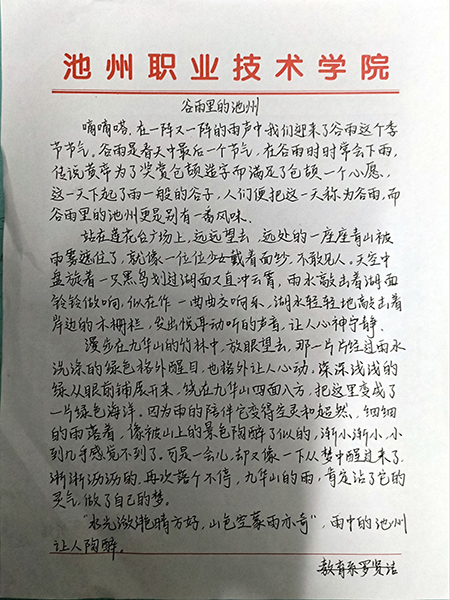 池州职业技术学院
谷雨里的池州
嘀嘀嗒,在一阵又一阵的雨声中我们迎来了谷雨这个季
节节气。谷雨是春天中最后一个节气,在谷雨时时常会下雨,
传说黄帝为了奖赏仓颉造字而满足了仓颉一个心愿,
这一天下起了雨一般的谷子,人们便把这一天称为谷雨,而
谷雨里的池州更是别有一番风味。
站在莲花台广场上,远远望去,远处的一座座青山被
雨雾遮住了,就像一位位少女戴着面纱,不敢见人。天空中
盘旋着一只黑鸟划过湖面又直冲云霄,雨水敲击着湖面
铃铃做响,似在作一曲曲交响乐,湖水轻轻地敲击着
岸边的木栅栏,发出悦耳动听的声音,让人心神宁静。
漫步在九华山的竹林中,放眼望去,那一片片经过雨水
洗涤的绿色格外醒目,也格外让人心动,深深浅浅的
绿从眼前铺展开来,绕在九华山四面八方,把这里变成了
一片绿色海洋。因为雨的陪伴它变得空灵和超然,细细
的雨落着,像被山上的景色陶醉了似的,渐小渐小,小
到几乎感觉不到了。可是一会儿,却又像一下从梦中醒过来了
淅淅沥沥的,再次落个不停,九华山的雨,肯定沾了它的
灵气,做了自己的梦。
“水光潋滟晴方好,山色空蒙雨亦奇”,雨中的池州
让人陶醉。
教育系罗贤洁